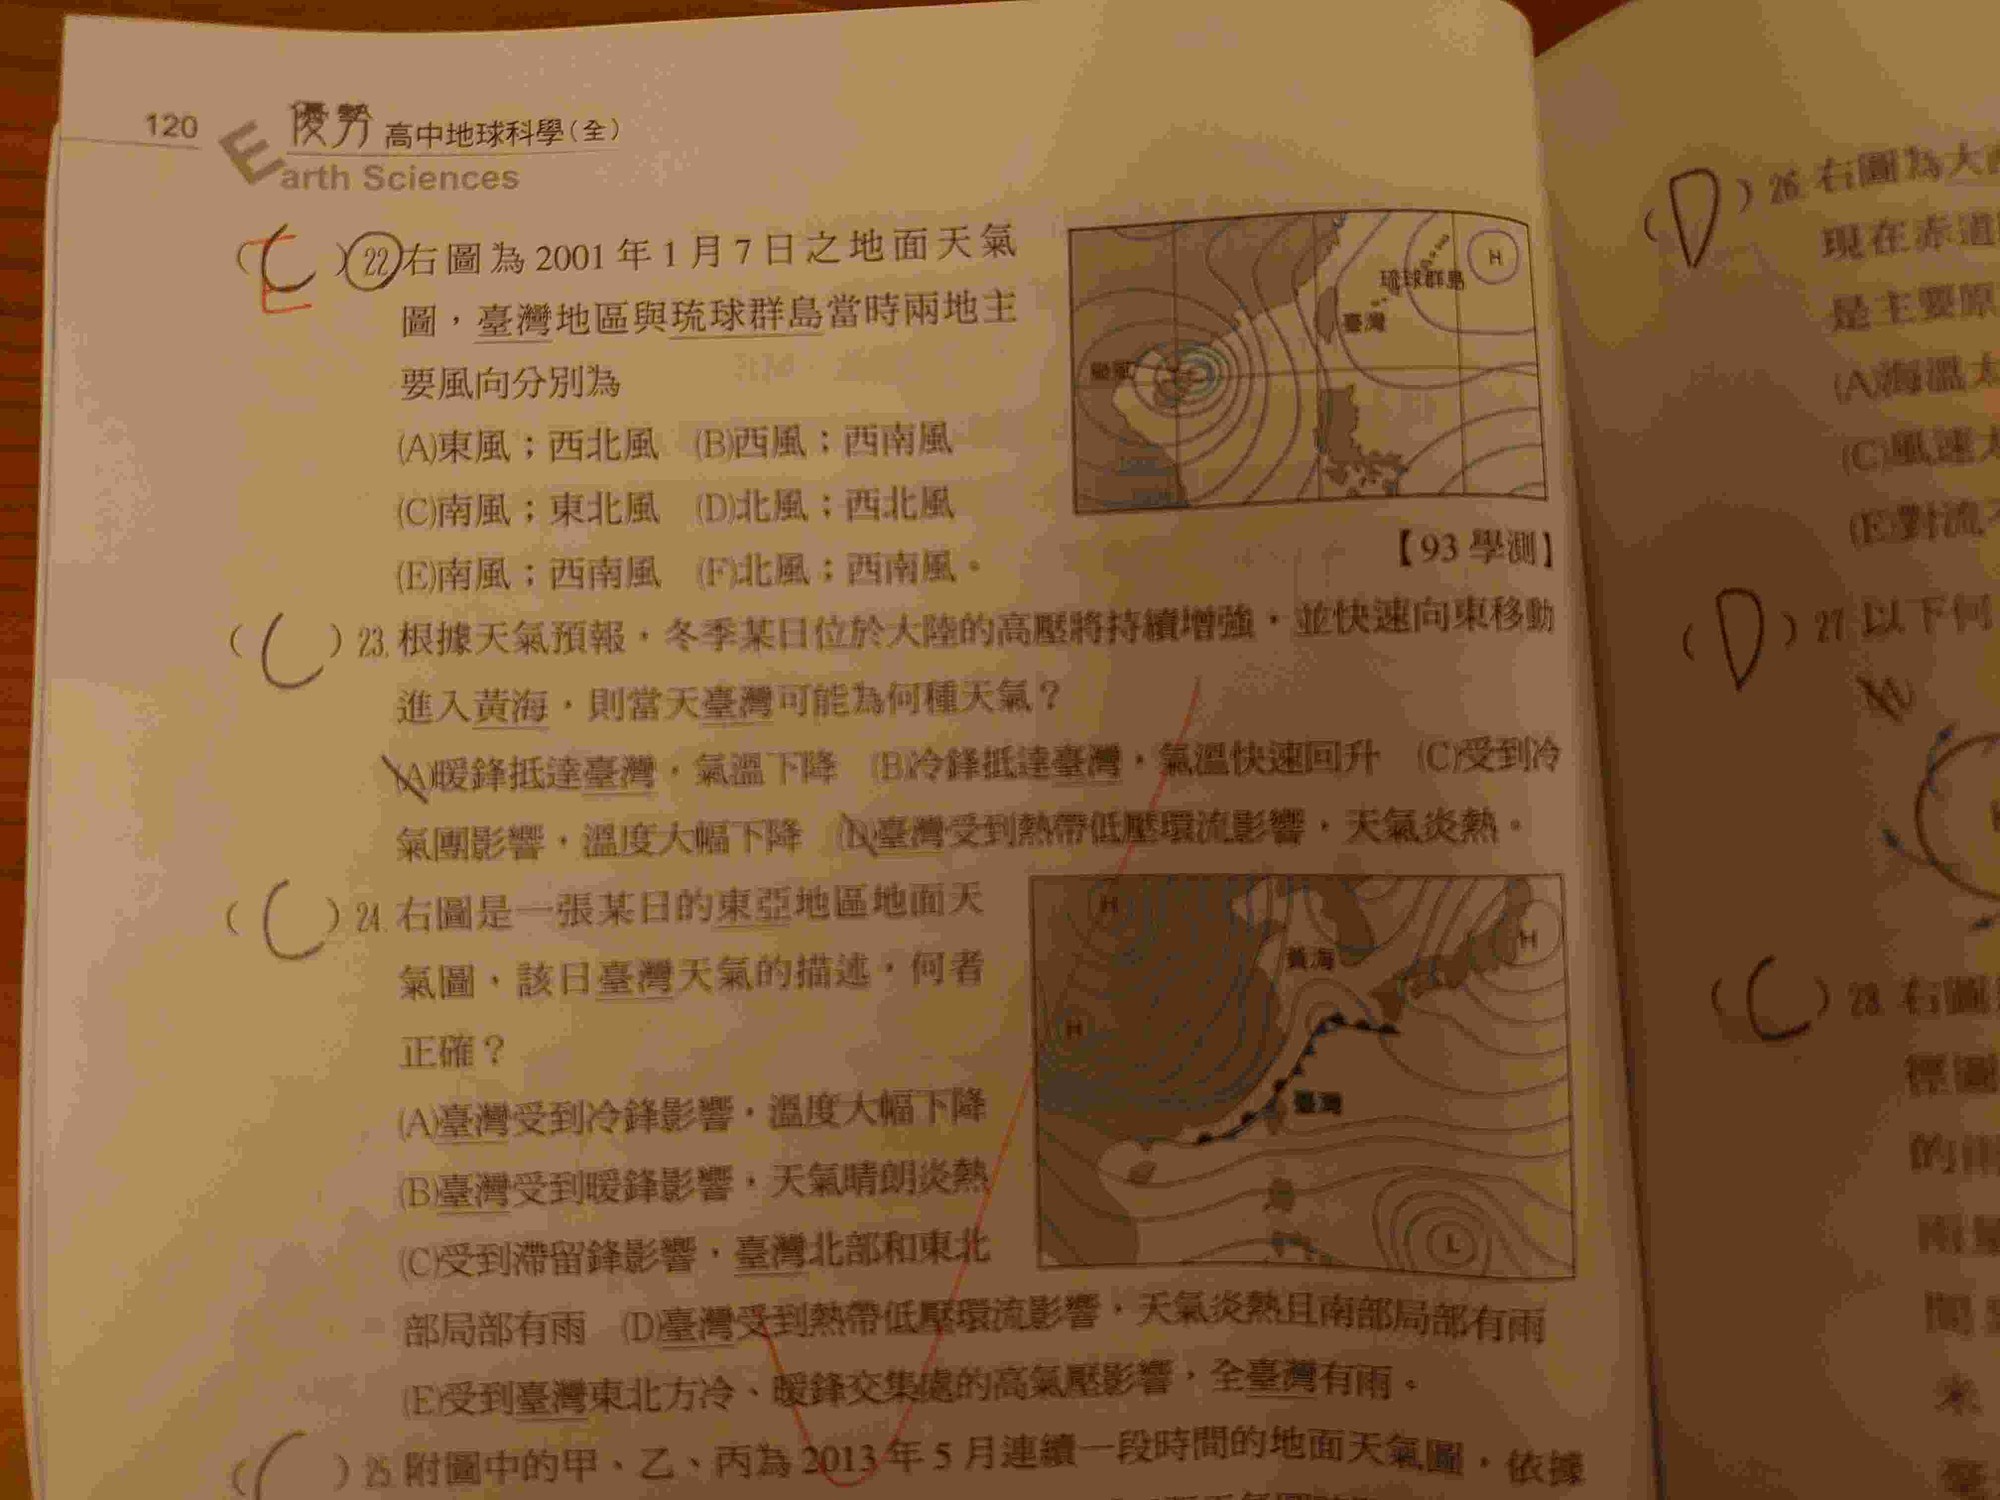 120
優勢 高中地球科學(全)
Earth Sciences
(C)22.右圖為2001年1月7日之地面天氣
E
圖，臺灣地區與琉球群島當時兩地主
要風向分別為
(A)東風；西北風 (B)西風；西南風
(C)南風；東北風 (D)北風；西北風
(E)南風；西南風 (F)北風；西南風。
H
琉球群島
臺灣
【93 學測】
(C)23.根據天氣預報，冬季某日位於大陸的高壓將持續增強，並快速向東移動
進入黃海，則當天臺灣可能為何種天氣？
(A)暖鋒抵達臺灣，氣溫下降 (B)冷鋒抵達臺灣，氣溫快速回升 (C)受到冷
氣團影響，溫度大幅下降 (D)臺灣受到熱帶低壓環流影響，天氣炎熱。
(C)24.右圖是一張某日的東亞地區地面天
氣圖，該日臺灣天氣的描述，何者
正確？
(A)臺灣受到冷鋒影響，溫度大幅下降
(B)臺灣受到暖鋒影響，天氣晴朗炎熱
(C)受到滯留鋒影響，臺灣北部和東北
部局部有雨 (D)臺灣受到熱帶低壓環流影響，天氣炎熱且南部局部有雨
(E)受到臺灣東北方冷、暖鋒交集處的高氣壓影響，全臺灣有雨。
H
黃海
H
H
臺灣
L
(C)25.附圖中的甲、乙、丙為2013年5月連續一段時間的地面天氣圖，依據
(D)26.右圖為大
現在赤道
是主要原
(A)海溫太
(C)風速太
(E)對流不
(D)27.以下何
(C)28.右圖